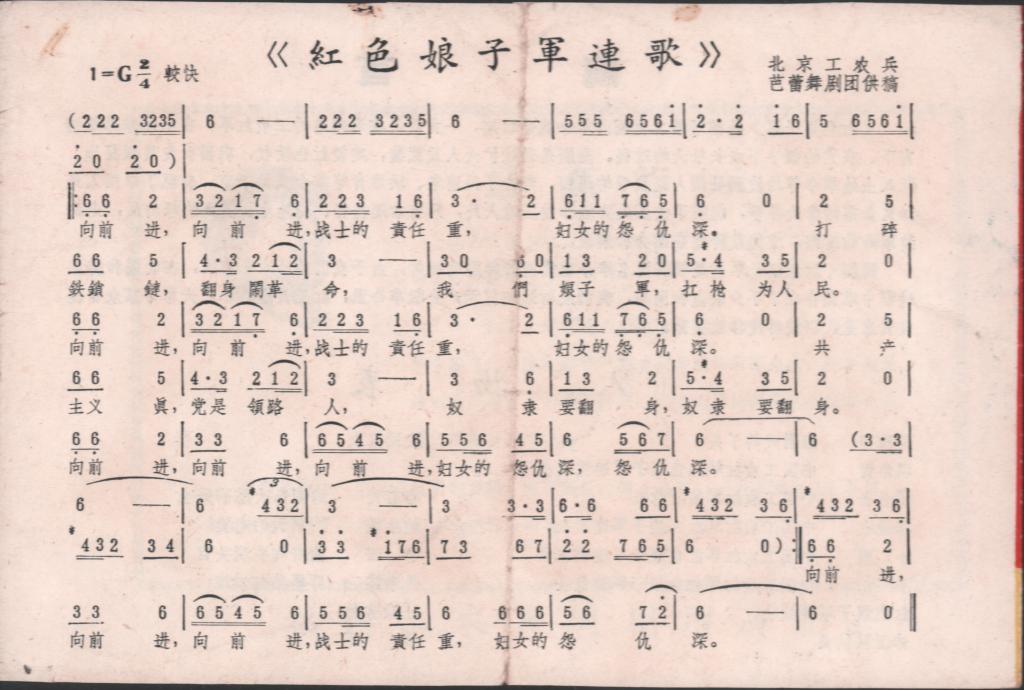 《紅色娘子軍連歌》
1=G 2/4 較快
北京工农兵
芭蕾舞剧团供稿
(222 3235 | 6 — | 222 3235 | 6 — | 555 6561 | 2·2 16 | 5 6561 |
20 20)
66 2 | 3217 6 | 223 16 | 3· 2 | 611 765 | 6 0 | 2 5 |
向前 进, 向 前 进, 战士的 責任 重, 妇女的 怨 仇 深。 打 碎
66 5 | 4·3 212 | 3 — | 30 60 | 13 20 | 5·#4 35 | 2 0 |
鉄鎖 鏈, 翻身 鬧革 命, 我 們 娘子 軍, 扛枪 为人 民。
66 2 | 3217 6 | 223 16 | 3· 2 | 611 765 | 6 0 | 2 5 |
向前 进, 向 前 进, 战士的 責任 重, 妇女的 怨 仇 深。 共 产
66 5 | 4·3 212 | 3 — | 3 6 | 13 2 | 5·#4 35 | 2 0 |
主义 眞, 党是 領路 人, 奴 隶 要翻 身, 奴隶 要翻 身。
66 2 | 33 6 | 6545 6 | 556 45 | 6 567 | 6 — | 6 (3·3 |
向前 进, 向前 进, 向 前 进, 妇女的 怨仇 深, 怨仇 深。
6 — | 6 #432 | 3 — | 3 3·3 | 6·6 66 | #432 36 | #432 36 |
3
#432 34 | 6 0 | 33 #176 | 73 67 | 22 765 | 6 0) :| 66 2 |
向前 进,
33 6 | 6545 6 | 556 45 | 6 666 | 56 72 | 6 — | 6 0 ||
向前 进, 向 前 进, 战士的 責任 重, 妇女的 怨 仇 深。